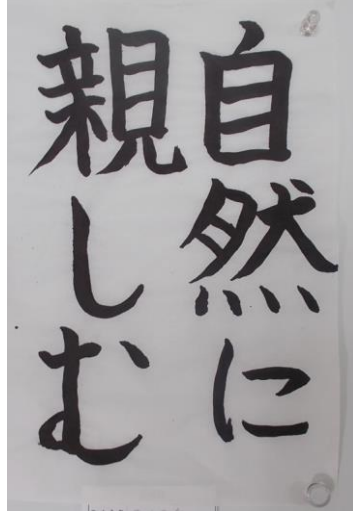 自然に
親しむ